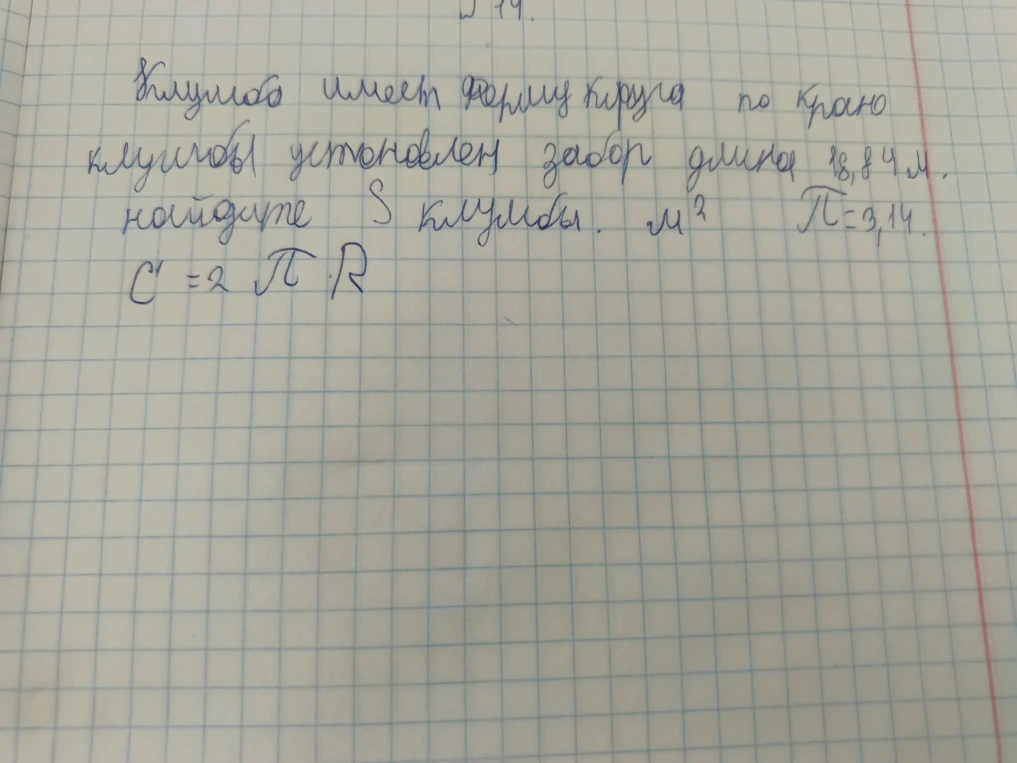 Клумба имеет форму круга по краю
клумбы установлен забор длина 18,84 м.
найдите S клумбы. м² П=3,14.
C = 2 П · R